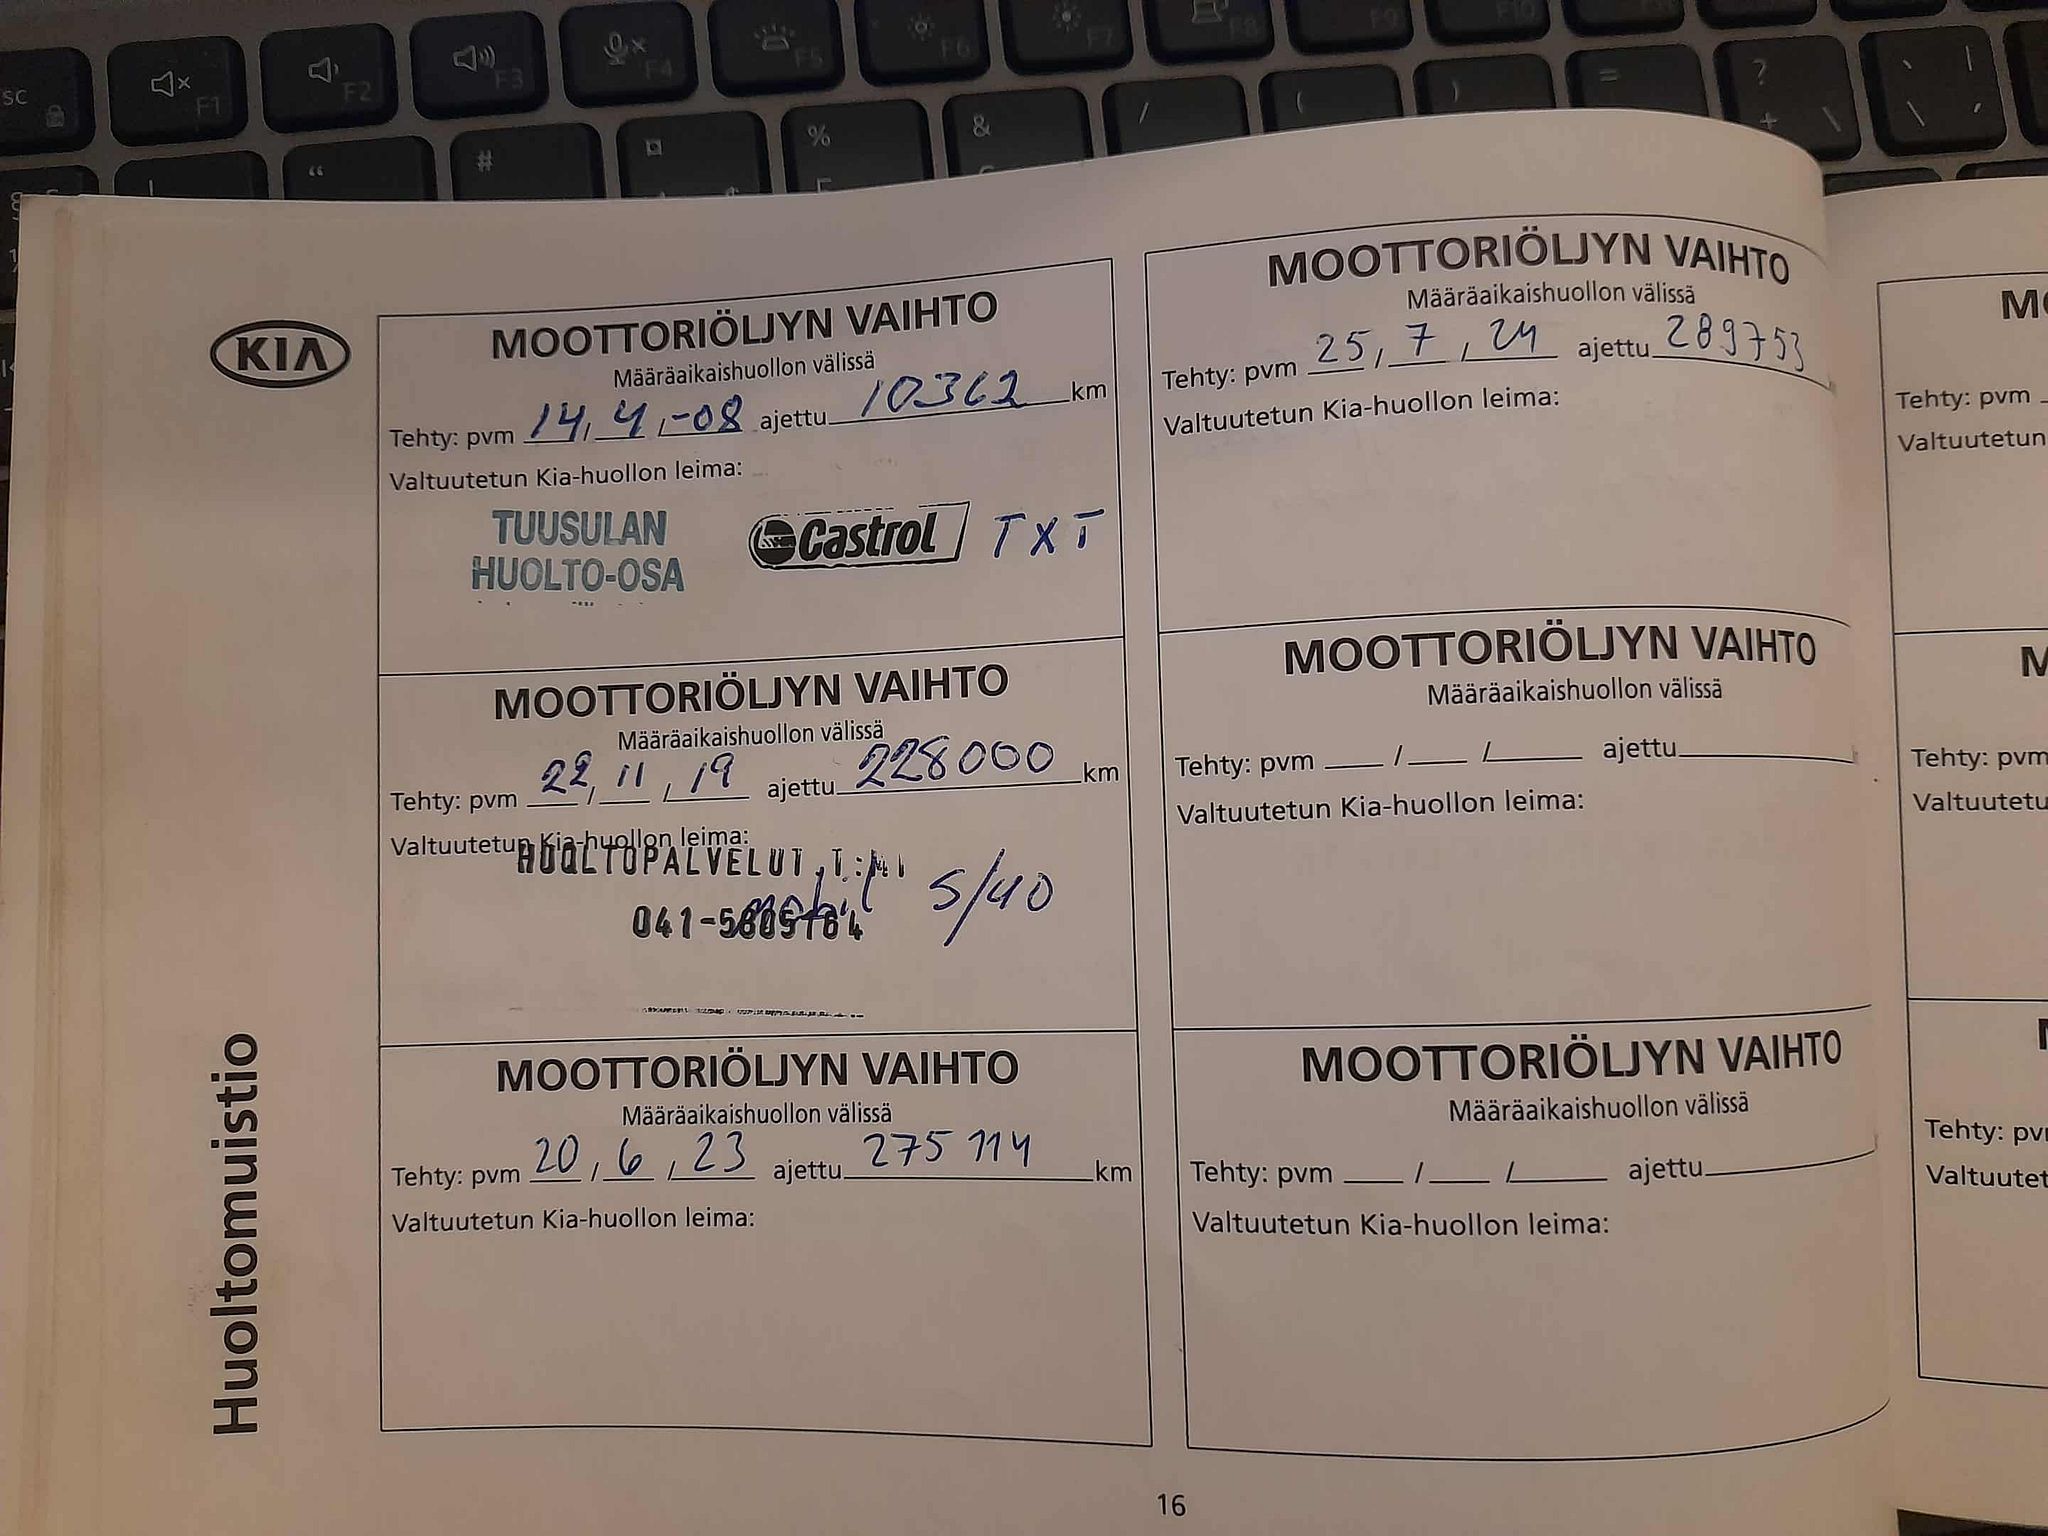 SC
F1
F2
F3
F4
F5
F6
F7
F8
F9
F10
! " # ¤ % & / ( ) = ?
+ \
KIA
Huoltomuistio
MOOTTORIÖLJYN VAIHTO
Määräaikaishuollon välissä
Tehty: pvm 14, 4, -08 ajettu 10362 km
Valtuutetun Kia-huollon leima:
TUUSULAN
HUOLTO-OSA
Castrol TXT
MOOTTORIÖLJYN VAIHTO
Määräaikaishuollon välissä
Tehty: pvm 22, 11, 19 ajettu 228000 km
Valtuutetun Kia-huollon leima:
HUOLTOPALVELUT T:MI
mobil 5/40
MOOTTORIÖLJYN VAIHTO
Määräaikaishuollon välissä
Tehty: pvm 20, 6, 23 ajettu 275 114 km
Valtuutetun Kia-huollon leima:
MOOTTORIÖLJYN VAIHTO
Määräaikaishuollon välissä
Tehty: pvm 25, 7, 24 ajettu 289753
Valtuutetun Kia-huollon leima:
MOOTTORIÖLJYN VAIHTO
Määräaikaishuollon välissä
Tehty: pvm ___ / ___ / ___ ajettu
Valtuutetun Kia-huollon leima:
MOOTTORIÖLJYN VAIHTO
Määräaikaishuollon välissä
Tehty: pvm ___ / ___ / ___ ajettu
Valtuutetun Kia-huollon leima:
M
Tehty: pvm
Valtuutetun
M
Tehty: pvm
Valtuutetu
Tehty: pv
Valtuutet
16